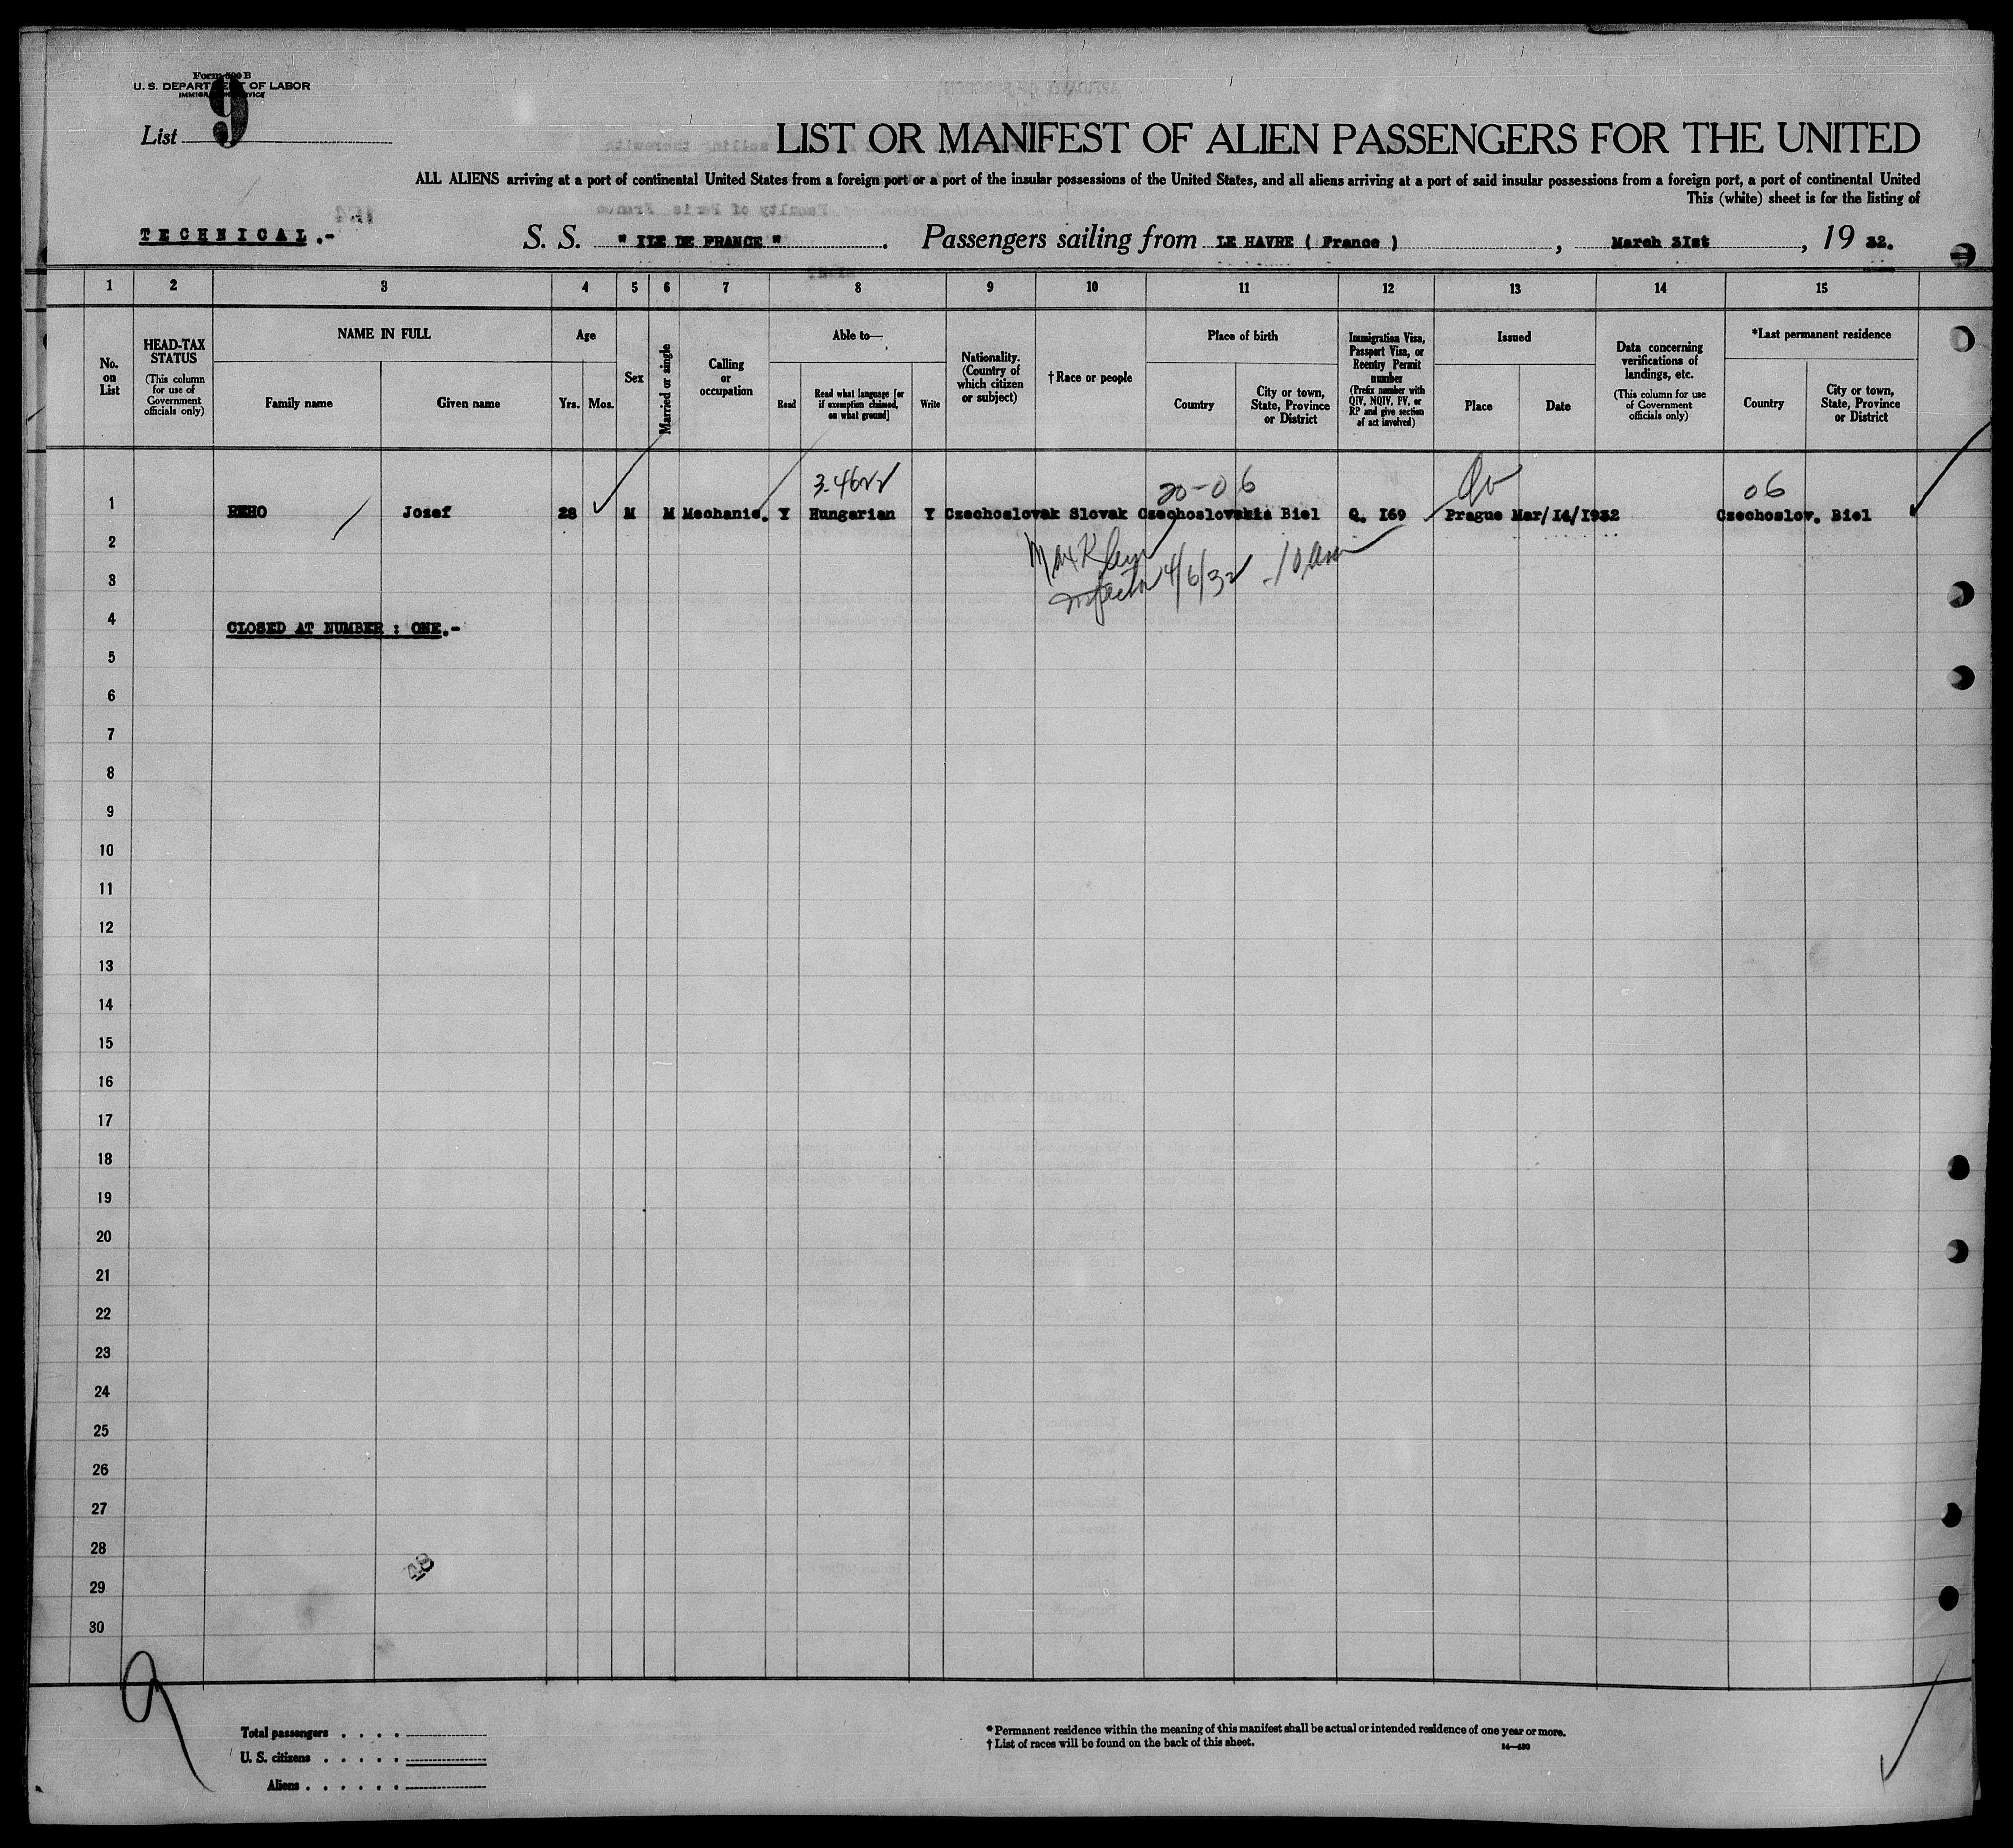 Form 500 B
U. S. DEPARTMENT OF LABOR
IMMIGRATION SERVICE
List 9
LIST OR MANIFEST OF ALIEN PASSENGERS FOR THE UNITED
ALL ALIENS arriving at a port of continental United States from a foreign port or a port of the insular possessions of the United States, and all aliens arriving at a port of said insular possessions from a foreign port, a port of continental United
This (white) sheet is for the listing of
TECHNICAL.-
S. S. " ILE DE FRANCE " . Passengers sailing from LE HAVRE ( France ) , March 3Ist , 19 32.
1 2 3 4 5 6 7 8 9 10 11 12 13 14 15
No. on List
HEAD-TAX STATUS
(This column for use of Government officials only)
NAME IN FULL
Family name Given name
Age
Yrs. Mos.
Sex
Married or single
Calling or occupation
Able to—
Read
Read what language [or if exemption claimed, on what ground]
Write
Nationality. (Country of which citizen or subject)
†Race or people
Place of birth
Country
City or town, State, Province or District
Immigration Visa, Passport Visa, or Reentry Permit number
(Prefix number with QIV, NQIV, PV, or RP and give section of act involved)
Issued
Place Date
Data concerning verifications of landings, etc.
(This column for use of Government officials only)
*Last permanent residence
Country
City or town, State, Province or District
20-06 06
1 REHO Josef 28 M M Mechanic. Y Hungarian Y Czechoslovak Slovak Czechoslovakia Biel Q. I69 Prague Mar/I4/I932 Czechoslov. Biel
2 Max Klein
3 Inspector 4/6/32 - 10 am
4 CLOSED AT NUMBER : ONE.-
5
6
7
8
9
10
11
12
13
14
15
16
17
18
19
20
21
22
23
24
25
26
27
28
48
29
30
9
Total passengers . . . .
U. S. citizens . . . . .
Aliens . . . . . .
* Permanent residence within the meaning of this manifest shall be actual or intended residence of one year or more.
† List of races will be found on the back of this sheet.
14—430